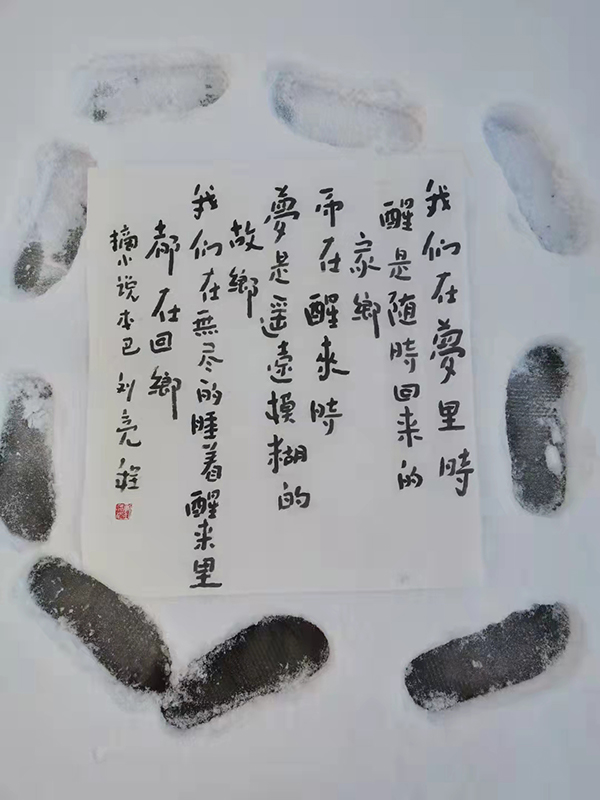 我们在夢里時
醒是随時回来的
家鄉
而在醒来時
夢是遥遠模糊的
故鄉
我们在無尽的睡着醒来里
都在回鄉
摘小说本巴 刘亮程